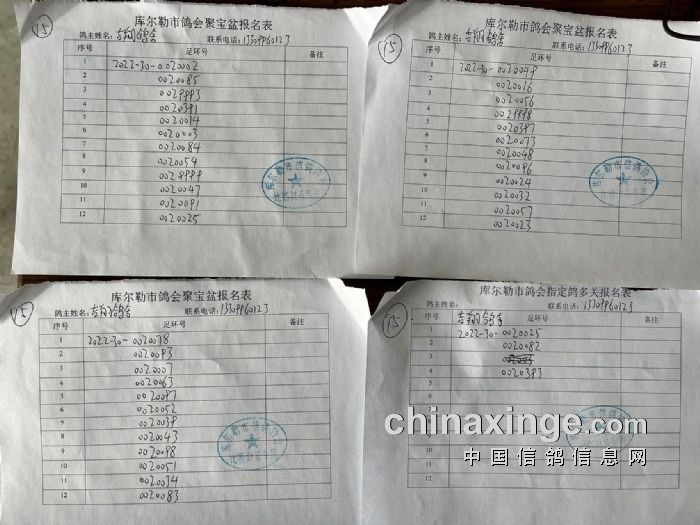 15
库尔勒市鸽会聚宝盆报名表
鸽主姓名: 吉翔鸽舍 联系电话: 13309960123
序号 足环号 备注
1 2022-30-0020002
2 0020085
3 0029993
4 0020391
5 0020014
6 0020003
7 0020084
8 0020054
9 0029999
10 0020047
11 0020091
12 0020025
库尔勒市信鸽协会
15
库尔勒市鸽会聚宝盆报名表
鸽主姓名: 吉翔鸽舍 联系电话: 13309960123
序号 足环号 备注
1 2022-30-0020049
2 0020016
3 0020056
4 0029998
5 0020397
6 0020073
7 0020048
8 0020096
9 0020024
10 0020032
11 0020057
12 0020023
库尔勒市信鸽协会
15
库尔勒市鸽会聚宝盆报名表
鸽主姓名: 吉翔鸽舍 联系电话: 13309960123
序号 足环号 备注
1 2022-30-0020078
2 0020093
3 0020007
4 0020063
5 0020097
6 0020052
7 0020039
8 0020043
9 0020098
10 0020051
11 0020034
12 0020083
库尔勒市信鸽协会
15
库尔勒市鸽会指定鸽多关报名表
鸽主姓名: 吉翔鸽舍 联系电话: 13309960123
序号 足环号 备注
1 2022-30-0020025
2 0020082
3
4 0020393
5
6
7
8
9
10
11
12
chinaxinge.com
中国信鸽信息网